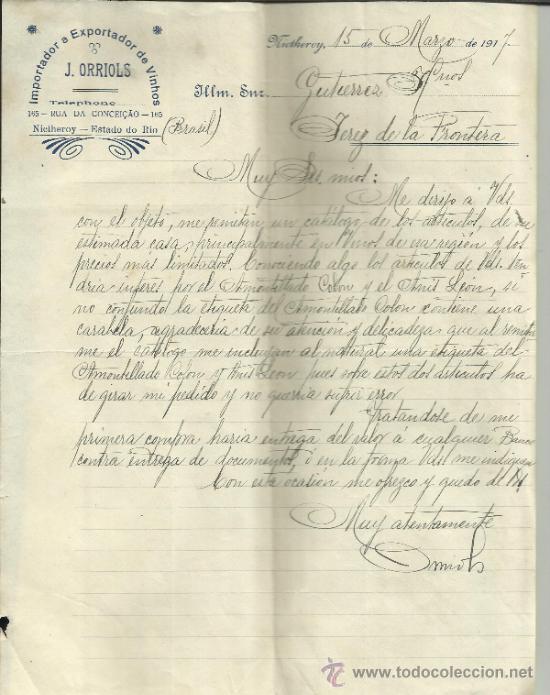 Importador e Exportador de Vinhos
J. ORRIOLS
Telephone
165 – RUA DA CONCEIÇÃO – 165
Nictheroy – Estado do Rio
(Brasil)
Nictheroy, 15 de Marzo de 1917
Illm. Snr. Gutierrez Hnos
Jerez de la Frontera
Muy Sres mios:
Me dirijo á Vds
con el objeto, me remitan un catálogo de los articulos, de su
estimada casa, principalmente en Vinos de esa región y los
precios mas limitados. Conociendo algo los articulos de Vds. ten
dria interes por el Amontillado Colon y el Anis Leon, si
no confundo la etiqueta del Amontillado Colon contiene una
carabela, agradeceria de su atención y delicadeza que al remitir
me el catálogo me incluyan al natural una etiqueta del
Amontillado Colon y Anis Leon pues sobre estos dos articulos ha
de girar mi pedido y no querria sufrir error.
Tratandose de me
primera compra haria entrega del valor a cualquier Banco
contra entrega de documentos, ó en la forma Vds me indiquen
Con esta ocasión me ofrezco y quedo de Vds
Muy atentamente
Orriols
todocoleccion
© www.todocoleccion.net